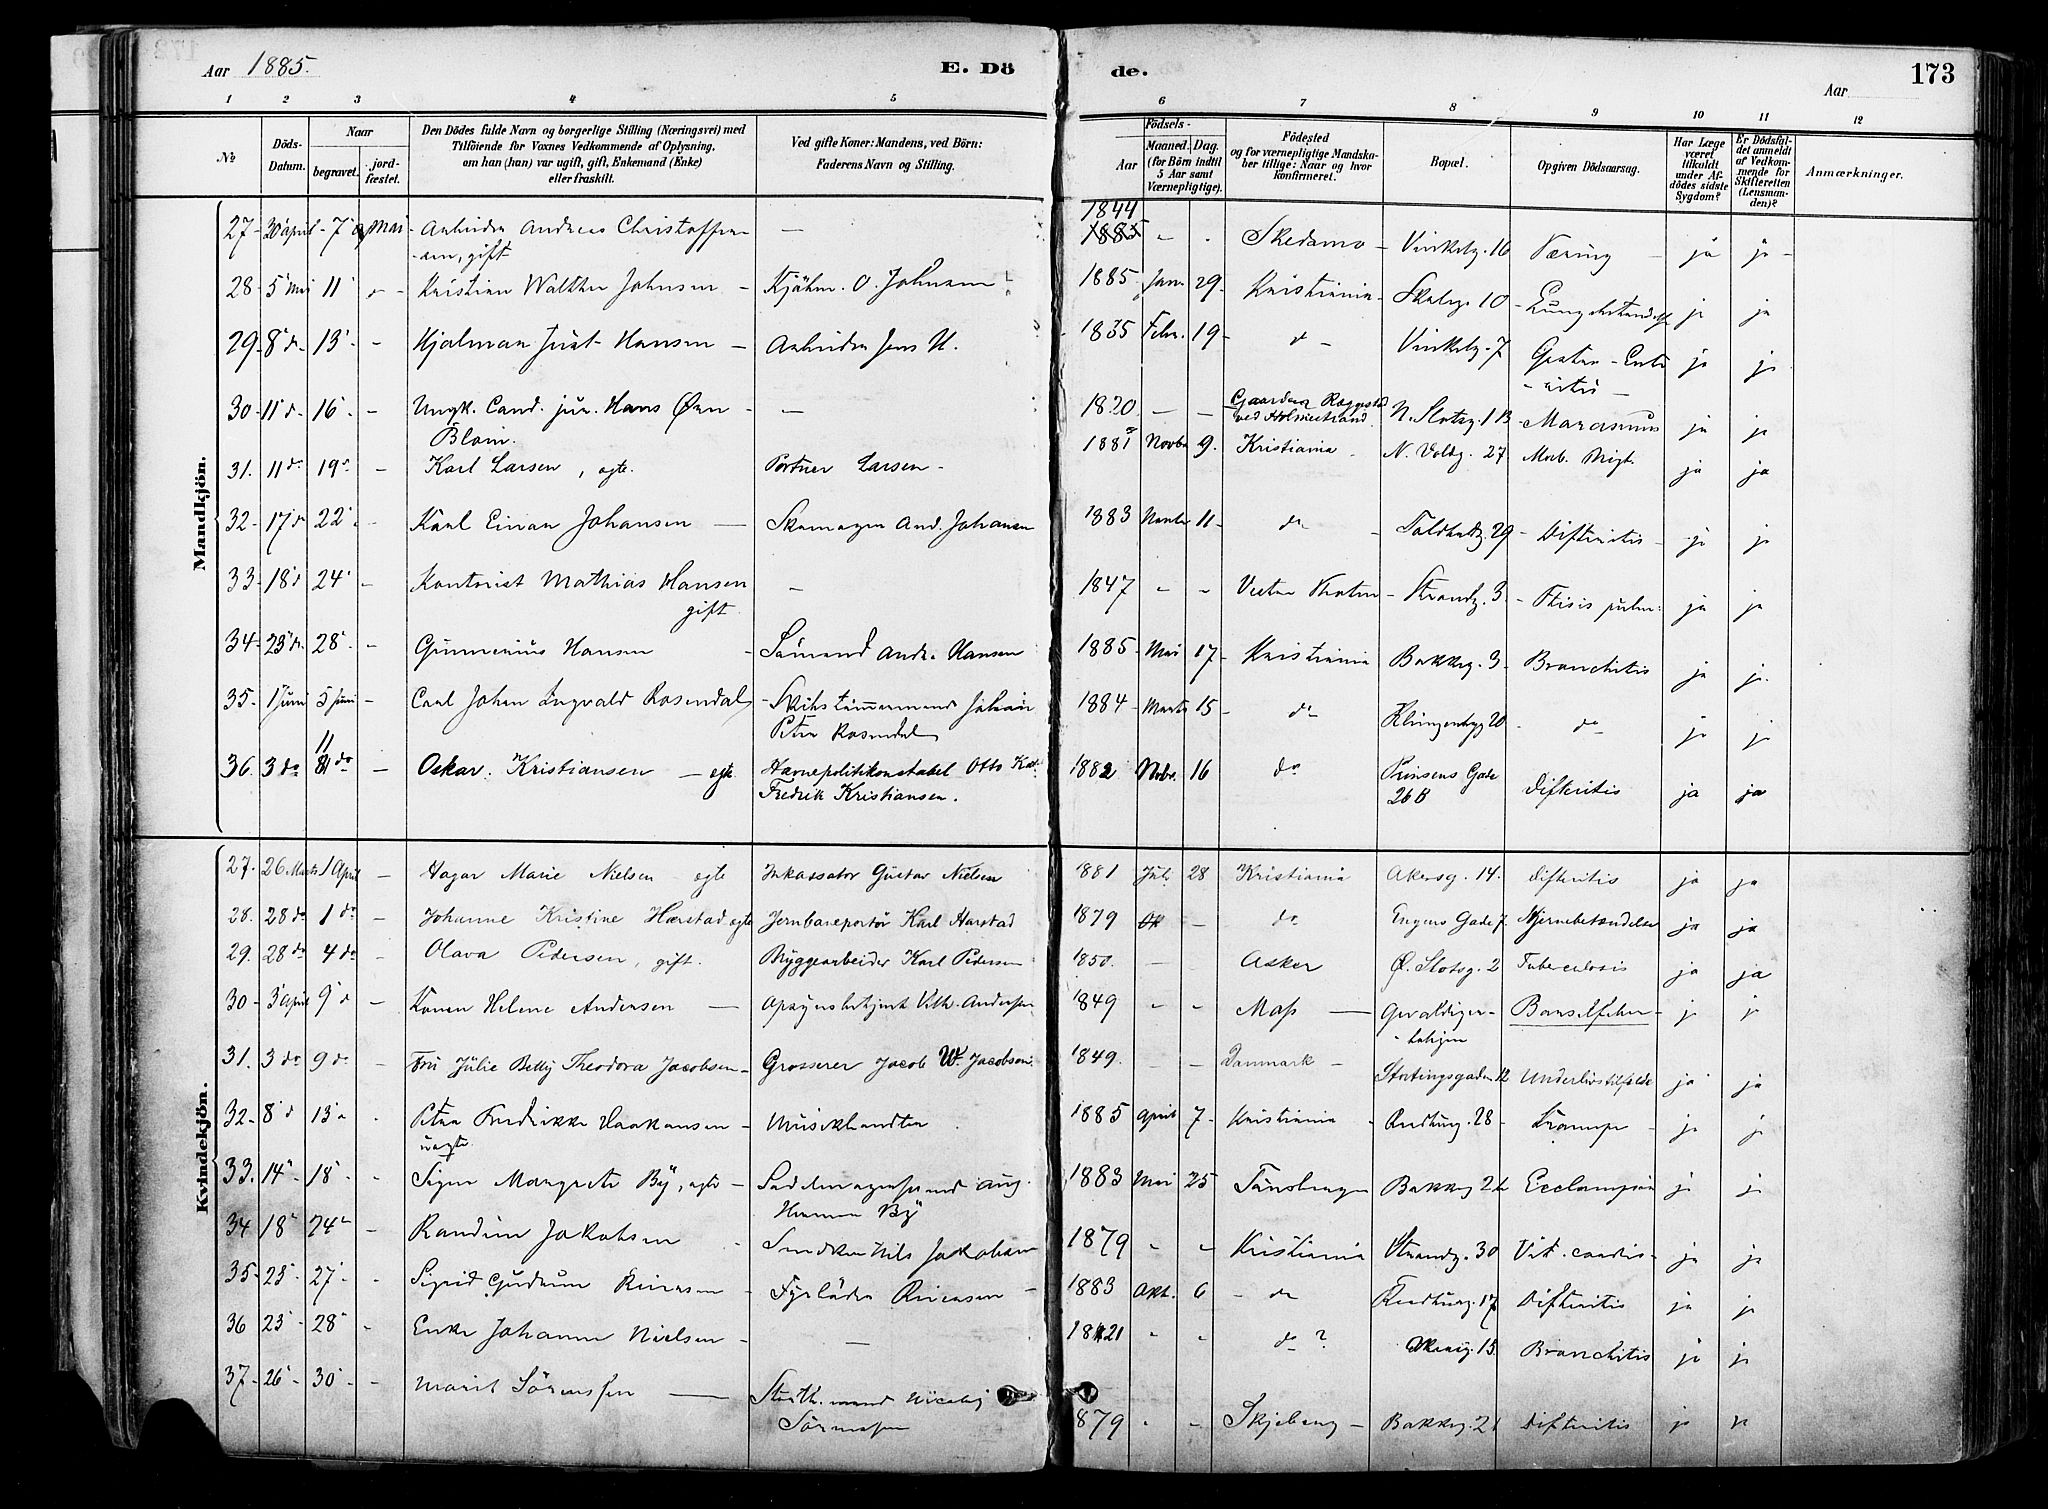 Aar 1885.
E. Dö
de.
Aar
173
1 2 3 4 5 6 7 8 9 10 11 12
No
Döds-Datum.
Naar
begravet.
jord-fæstet.
Den Dödes fulde Navn og borgerlige Stilling (Næringsvei) med
Tilföiende for Voxnes Vedkommende af Oplysning,
om han (hun) var ugift, gift, Enkemand (Enke)
eller fraskilt.
Ved gifte Koner: Mandens, ved Börn:
Faderens Navn og Stilling.
Födsels-
Aar
Maaned. Dag.
(for Börn indtil
5 Aar samt
Værnepligtige).
Födested
og for værnepligtige Mandska-
ber tillige: Naar og hvor
konfirmeret.
Bopæl.
Opgiven Dödsaarsag.
Har Læge
været
tilkaldt
under Af-
dödes sidste
Sygdom?
Er Dödsfal-
det anmeldt
af Vedkom-
mende for
Skifteretten
(Lensman-
den)?
Anmærkninger.
Mandkjön.
1844
27 - 30 april - 7 Mai - Andreas Christoffer- — 1885 " " Skedsmo - Vinkelg. 16 Tæring ja ja
sen, gift
28 - 5 Mai 11 - Kristian Walther Johnsen - Kjöbm. O. Johnsen 1885 Jan. 29 - Kristiania - 10 - ja ja
29 - 8 do 13 - Hjalmar Just Hansen - Jens H. 1835 Febr. 19 - do - Vinkelg. 7 ja ja
30 - 11 do 16 - Ungk. Cand. jur. Hans Ørn - — 1820 — — Gaarden ved Holmestrand N. Slotsg. 1 B - Marasmus ja ja
Blom.
31. 11 do 19 - Karl Larsen, egte. Portner Larsen - 1881 Novbr 9. Kristiania - N. Voldg. 27 Morb. Brigt. ja ja
32 - 17 do 22 - Karl Einar Johansen — Skomager And. Johansen 1883 Novbr 11 - do - Toldbodg. 29 - Difteritis - ja ja
33 - 18 do 24 - Kontorist Mathias Hansen - 1847 " " Vestre Thoten - Strandg. 3 - Ftisis pulm: ja ja
gift.
34 - 23 do 28 - Gunnerius Hansen - Sömand Andr. Hansen 1885 - Mai 17 - Kristiania Bakkeg. 3 - Bronchitis ja ja
35. 1 Juni 5 Juni - Carl Johan Ingvald Rosendal - Skibstømmermand Johan 1884 - Marts 15 - do Klingenbgg 20 - do ja ja
Petter Rosendal
36. 3 do 11 do - Oskar Kristiansen - egte. Havnepolitikonstabel Otto 1882 Nvbr. 16 do Prinsens Gade Difteritis ja ja
Fredrik Kristiansen. 26 B
Kvindekjön.
27. 26 Marts 1 April - Hagar Marie Nielsen - egte Inkassator Gustav Nielsen 1881 Jul. 28 Kristiania Akersg. 14. Difteritis ja ja
28. 28 do 1 do - Johanne Kristine Harstad egte Jernbareportør Karl Harstad 1879 Ok — do Engens Gade 7 Njernebetændelse ja ja
29. 28 do 4 do - Olava Pedersen, gift. Bryggearbeider Karl Pedersen 1850. — — Asker Ø. Slotsg. 2 Tuberculosis ja ja
30 - 3 April 9 do - Karen Helene Andersen — Opsynsbetjent Vilh. Andersen 1849 " " Moss — Barselfeber - ja ja
31. 3 do 9 do - Fru Julie Betty Theodora Jacobsen - Grosserer Jacob W. Jacobsen. 1849. — — Danmark - Stortingsgaden 12 Underlivstilfælde ja ja
32 - 8 do 13 - Petra Fredrikke Haakonsen - Musikhandler 1885 April 7 - Kristiania - 28 - Krampe - ja ja
uegte.
33. 14 - 18 - Signe Margrete By, egte - Sadelmagersvend Aug. 1883 Mai 25 Tönsberg Bakkeg 21 Ecclampsia ja ja
Herman By
34 18 - 24 - Randine Jakobsen - Nils Jakobsen 1879 " " Kristiania Strandg. 30 Vit. cordis - ja ja
35 - 23 - 27 - Sigrid Gudrun - Fyrböder 1883 Okt. 6 - do 17 Difteritis ja ja
36 23 - 28 - Enke Johanne Nielsen - — 1821 " " do ? 15 Bronchitis ja ja
37 - 26 - 30 - Marit Sörenssen — Nicolaj 879 " " Skjeberg - Bakkeg. 21 Difteritis ja ja
Sörenssen